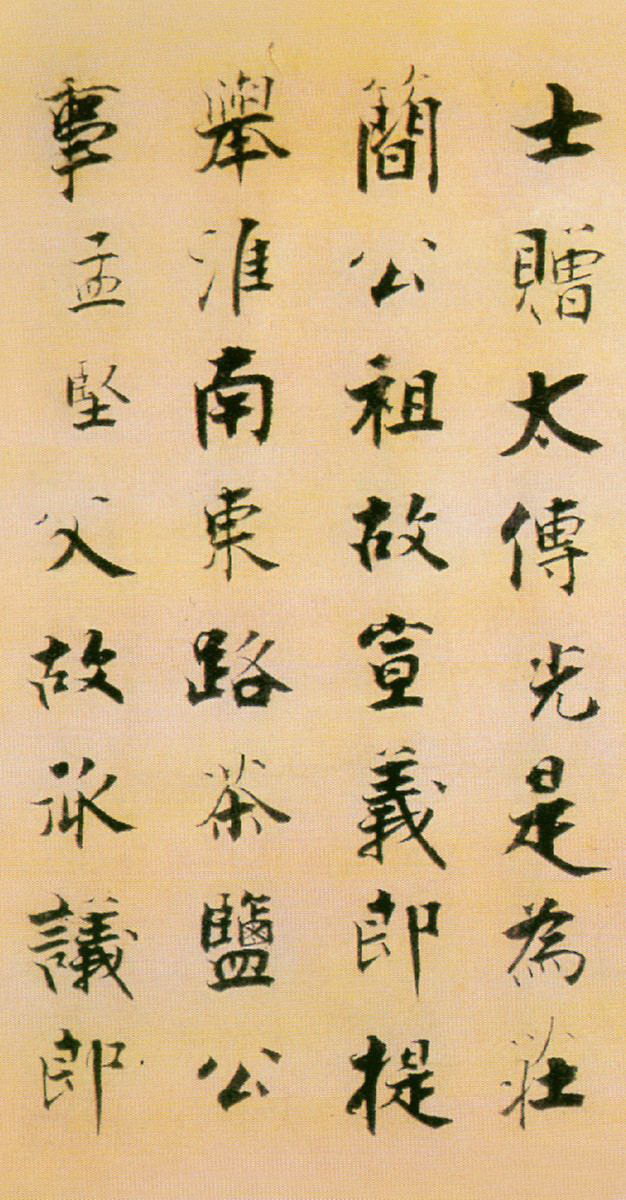 士贈太傅光是為莊
簡公祖故宣義郎提
舉淮南東路茶鹽公
事孟堅父故承議郎